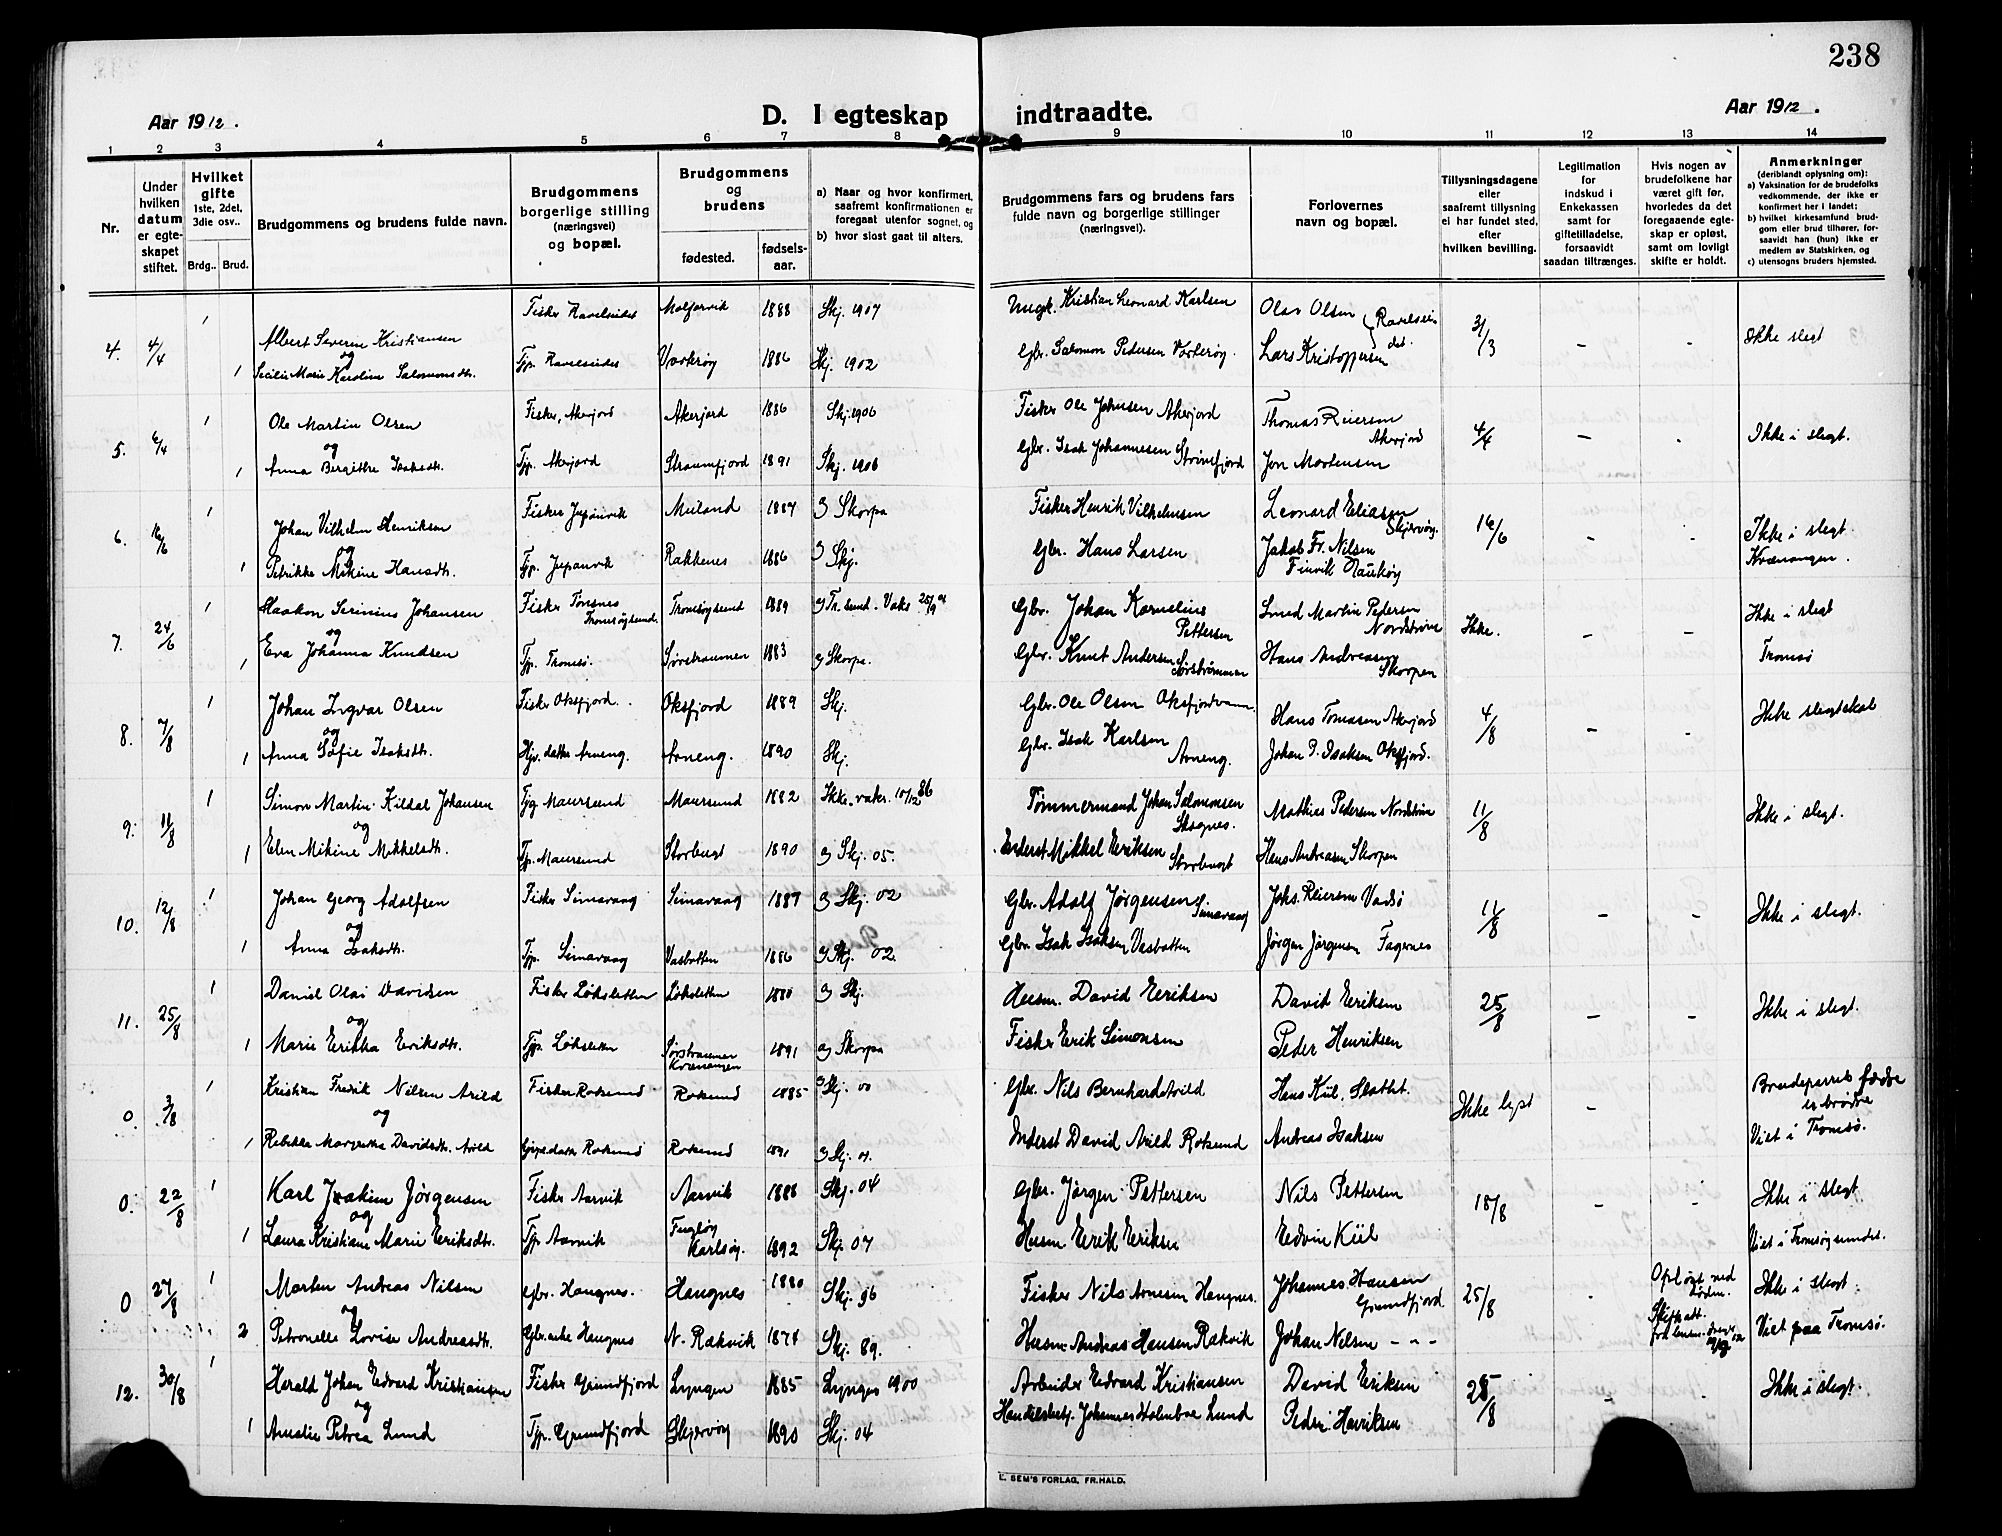 238
Aar 1912.
D. I egteskap indtraadte.
Aar 1912.
1 2 3 4 5 6 7 8 9 10 11 12 13 14
Nr.
Under hvilken datum er egteskapet stiftet.
Hvilket gifte
1ste, 2det, 3die osv..
Brdg.. Brud.
Brudgommens og brudens fulde navn.
Brudgommens borgerlige stilling (næringsvei) og bopæl.
Brudgommens og brudens
fødested.
fødselsaar.
a) Naar og hvor konfirmert, saafremt konfirmationen er foregaat utenfor sognet, og
b) hvor sidst gaat til alters.
Brudgommens fars og brudens fars fulde navn og borgerlige stillinger (næringsvei).
Forlovernes navn og bopæl.
Tillysningsdagene eller saafremt tillysning ei har fundet sted, efter hvilken bevilling.
Legitimation for indskud i Enkekassen samt for giftetilladelse, forsaavidt saadan tiltrænges.
Hvis nogen av brudefolkene har været gift før, hvorledes da det foregaaende egteskap er opløst, samt om lovligt skifte er holdt.
Anmerkninger (deriblandt oplysning om):
a) Vaksination for de brudefolks vedkommende, der ikke er konfirmert her i landet;
b) hvilket kirkesamfund brudgom eller brud tilhører, forsaavidt han (hun) ikke er medlem av Statskirken, og
c) utensogns bruders hjemsted.
4. 4/4 1 Albert Severin Kristiansen Fisker Ravelseidet 1888 Skj. 1907 Ungk. Kristian Leonard Karlsen Olav Olsen Ravelseidet. 3/3 - - Ikke slegt
og
1 Secilie Marie Karoline Salomonsdtr. Tjp. Ravelseidet Vorterøy 1886 Skj. 1902 Gbr. Salomon Pedersen Vorterøy. Lars Kristoffersen
5. 6/4 1 Ole Martin Olsen Fisker, Akerjord Akerjord 1886 Skj. 1906 Fisker Ole Johnsen Akerjord Thomas Reiersen Akerjord 4/4 - - Ikke i slegt.
og
1 Anna Bergitthe Isaksdtr. Tjp. Akerjord Straumfjord 1891 Skj. 1906 Gbr. Isak Johannesen Straumfjord Jon Mortensen
6. 16/6 1 Johan Vilhelm Henriksen Fisker Jupanvik Meiland 1887 Skorpa Fisker Henrik Vilhelmsen Leonard Eliasen Skjervøy. 16/6 - - Ikke i slegt.
og
1 Petrikke Mikine Hansdtr. Tjp. Jupanvik Rakkenes 1886 Skj. Gbr. Hans Larsen Jakob Fr. Nilsen Finvik Kvænangen.
7. 24/6 1 Haakon Serinius Johansen Fisker Tønsnes Tromsøysund. Tromsøysund 1889 Tr. sund. Vaks 25/9 Gbr. Johan Kornelius Pettersen Lmed Martin Pedersen Nordstrøm Ikke. - - Ikke i slegt
og
1 Eva Johanna Knudsen Tjp. Tromsø. Sørstraumen 1883 Skorpa. Gbr. Knut Andersen Sørstrømmen Hans Andreassen Skorpen Tromsø
8. 7/8 1 Johan Ingvar Olsen Fisker Oksfjord. Oksfjord 1889 Skj. Gbr. Ole Olsen Oksfjordvann Hans Tomasen Akerjord 4/8 - - Ikke slegtskab
og
1 Anna Sofie Isaksdtr. Hjv. datter Arneng. Arneng. 1890 Skj. Gbr. Isak Karlsen Arneng. Johan P. Isaksen Oksfjord.
9. 11/8 1 Simon Martin Kildal Johansen Tjg. Maursund Maursund 1882 Ikke. vaks. 10/12 86 Tømmermand Johan Salomonsen Skognes. Mathias Pedersen Nordstrøm 11/8 Ikke i slegt.
og
1 Elen Mikine Mikkelsdtr. Tjp. Maursund Storbugt 1890 Skj. 05. Inderst Mikkel Eriksen Storbugt Hans Andreasen Skorpen
10. 12/8 1 Johan Georg Adolfsen Fisker Simavaag Simavaag 1887 Skj. 02 Gbr. Adolf Jørgensen Simavaag Johs. Reiersen Vadsø 11/8 - - Ikke i slegt.
og
1 Anna Isaksdtr. Tjp. Simavaag Vasbotten 1886 Skj. 02. Gbr. Isak Isaksen Vasbotten Jørgen Jørgensen Fagernes
11. 25/8 1 Daniel Olai Davidsen Fisker Løksletten Løksletten 1880 Skj. Husm. David Eriksen David Eriksen 25/8 - - Ikke i slegt.
og
1 Marie Erikka Eriksdtr. Tjp. Løksletten Sørstraumen Kvænangen 1891 Skorpa Fisker Erik Simonsen Peder Henriksen
0. 3/8 1 Kristian Fredrik Nilsen Arild Fisker Rotsund Rotsund 1885 Skj. 00 Gbr. Nils Bernhard Arild Hans Kiil, Slottet. Ikke lyst - Brudeparrets fædre er brødre
og
1 Rebekka Margretha Davidsdtr. Arild Rotsund Rotsund 1891 Skj. Inderst David Arild Rotsund Andreas Isaksen Viet i Tromsø.
0. 22/8 1 Karl Joakim Jørgensen Fisker Aarvik Aarvik 1888 Skj. 04 Gbr. Jørgen Pettersen Nils Pettersen 18/8 - - Ikke i slegt
og
1 Laura Kristiane Marie Eriksdtr. Tjp. Aarvik Fugløy Karlsøy. 1892 Skj. 07 Husm Erik Eriksen Edvin Kiil Viet i Tromsøysundet.
0 27/8 1 Morten Andreas Nilsen Gbr. Haugnes. Haugnes 1880 Skj. 96 Fisker Nils Arnesen Haugnes. Johannes Hansen Grundfjord 25/8 Opløst ved døden. Ikke i slegt.
og
2 Petronelle Lovise Andreasdtr. Gbr. enke Haugnes N. Rækvik 1874 Skj. 89. Husm. Andreas Hansen Rækvik Johan Nilsen - " - Viet paa Tromsø.
12. 30/8 1 Harald Johan Edvard Kristiansen Fisker Grundfjord Lyngen 1885 Lyngen 1900 Arbeider Edvard Kristiansen David Eriksen 25/8 - - Ikke i slegt.
og
1 Amalie Petrea Lund Tjp. Grundfjord Skjervøy 1890 Skj. 04 Handelsbetj. Johannes Holmboe Lund Peder Henriksen
E. SEM'S FORLAG, FR.HALD.